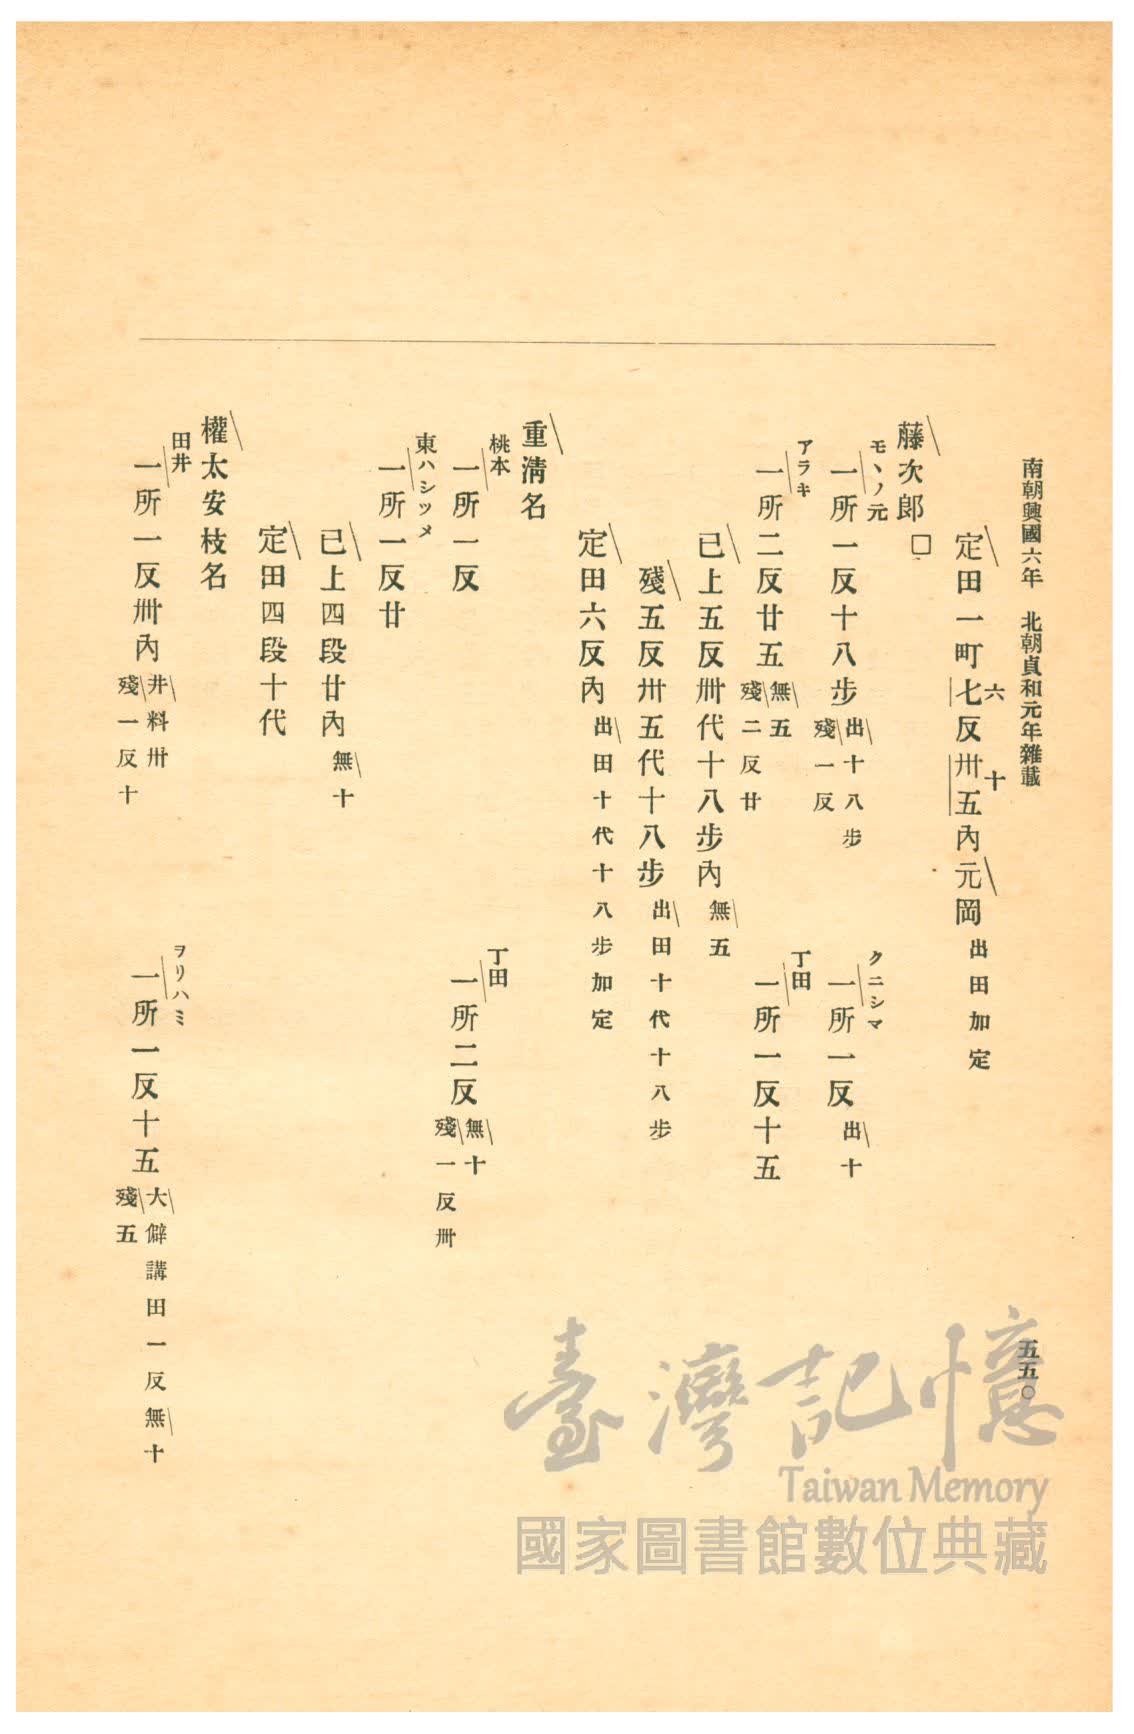 南朝興國六年　北朝貞和元年雜載
五五〇
定田一町七反卅五內元岡出田加定
六　十
藤次郎　□
モヽノ元
一所一反十八步
出十八步
殘一反
クニシマ
一所一反出十
アラキ
一所二反廿五
無五
殘二反廿
丁田
一所一反十五
已上五反卅代十八步內無五
殘五反卅五代十八步出田十代十八步
定田六反內出田十代十八步加定
重淸名
桃本
一所一反
丁田
一所二反
無十
殘一反卌
東ハシツメ
一所一反廿
已上四段廿內無十
定田四段十代
權太安枝名
田井
一所一反卌內
井料卅
殘一反十
ヲリハミ
一所一反十五
大僻講田一反無十
殘五
臺灣記憶
Taiwan Memory
國家圖書館數位典藏